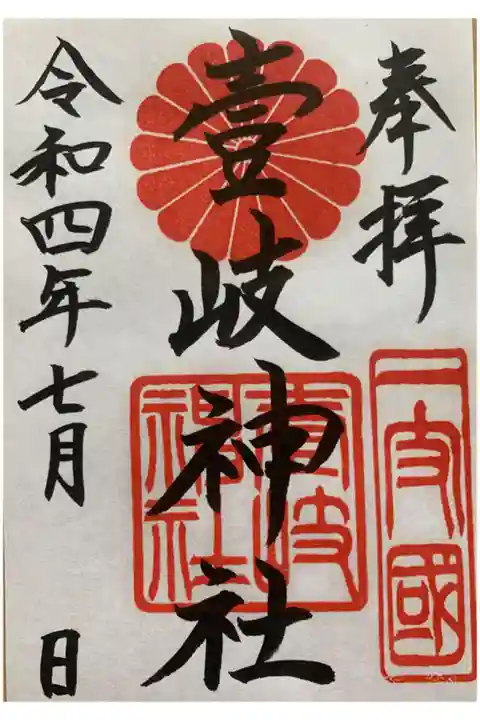 奉拝
一支國
壹岐神社
壹岐
神社
令和四年七月 日